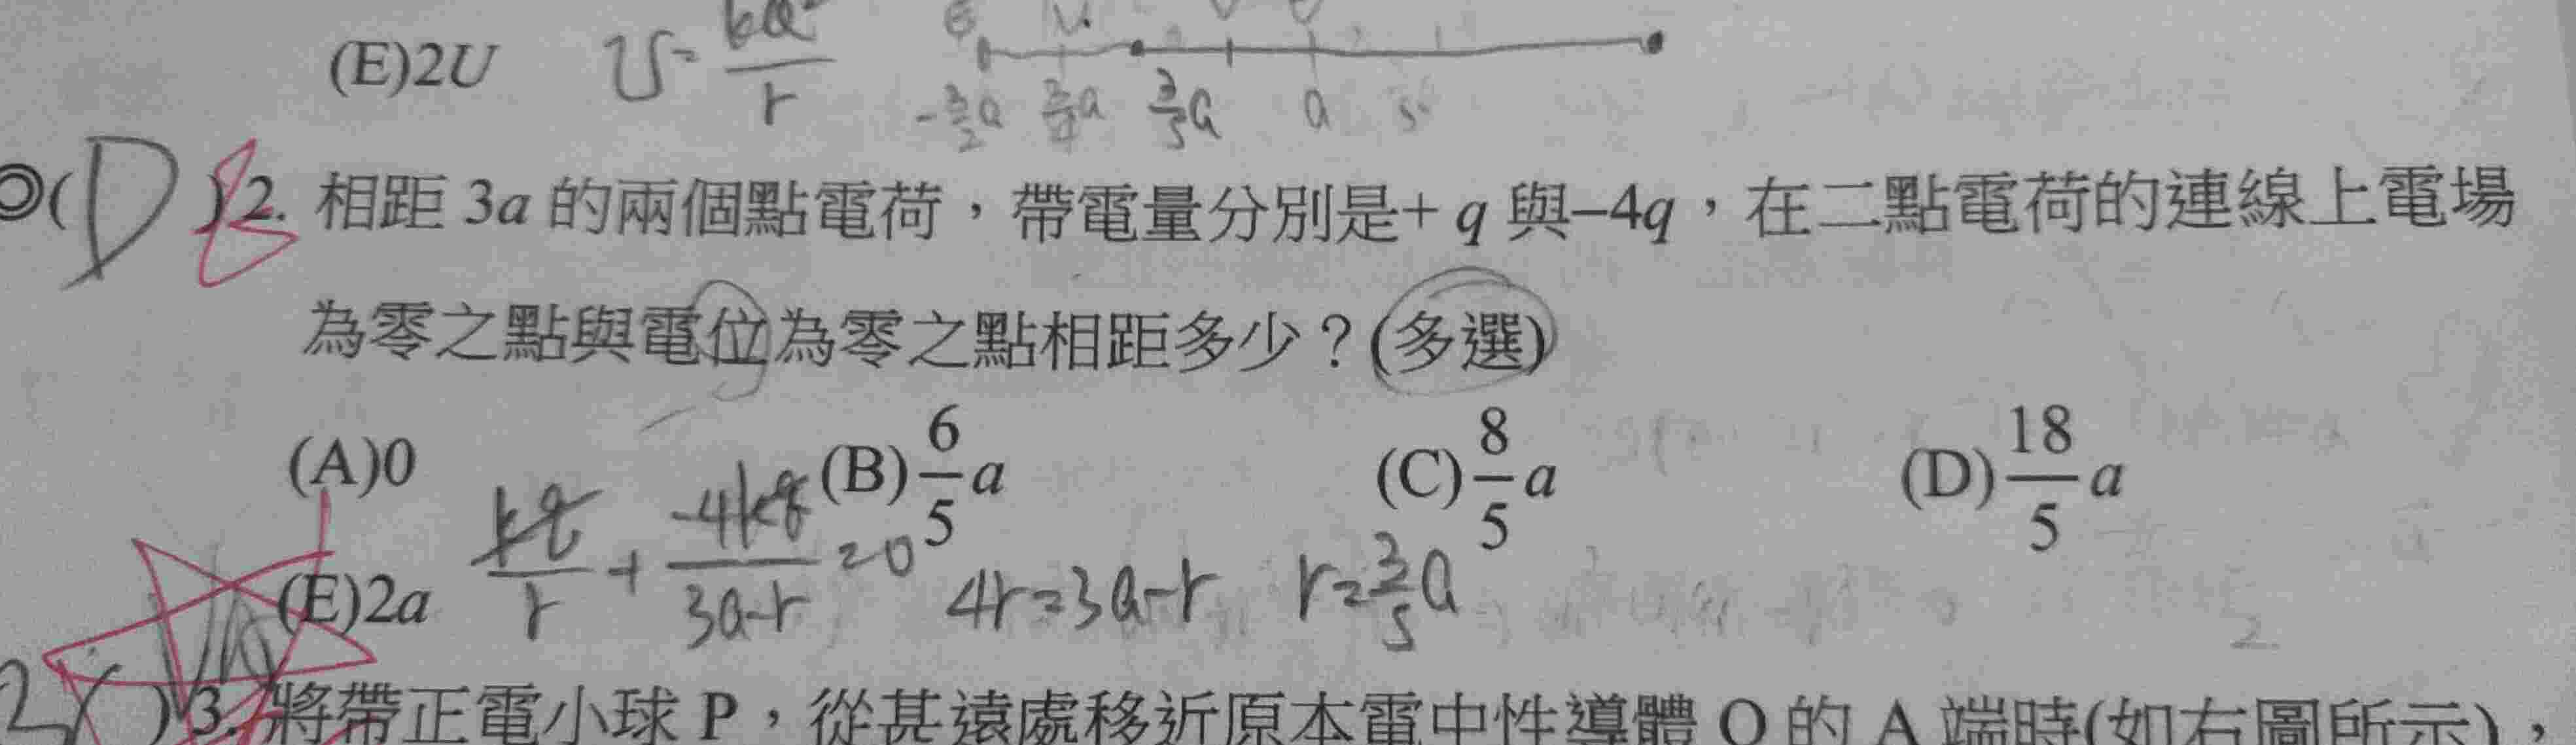 (E)2U U=kQ²/r
-3/2a a
(D)2. 相距 3a 的兩個點電荷，帶電量分別是+ q 與–4q，在二點電荷的連線上電場
為零之點與電位為零之點相距多少？(多選)
(A)0 (B)6/5 a (C)8/5 a (D)18/5 a
kq/r + -4kq/3a-r =0 4r=3a-r r=3/5a
(E)2a
( )3. 將帶正電小球 P，從甚遠處移近原本電中性導體 Q 的 A 端時(如右圖所示)，